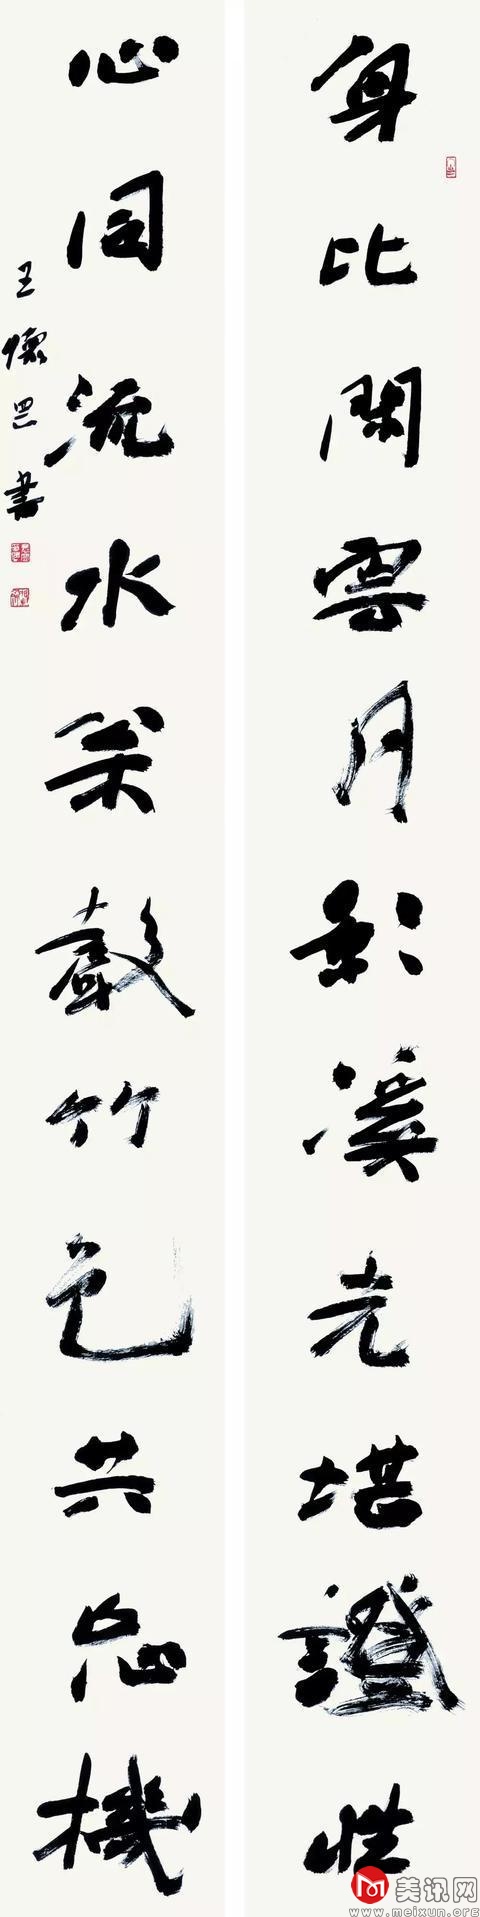 身比閑雲月影溪光堪證性
心同流水松聲竹色共忘機
王懷思書
美讯网
www.meixun.org